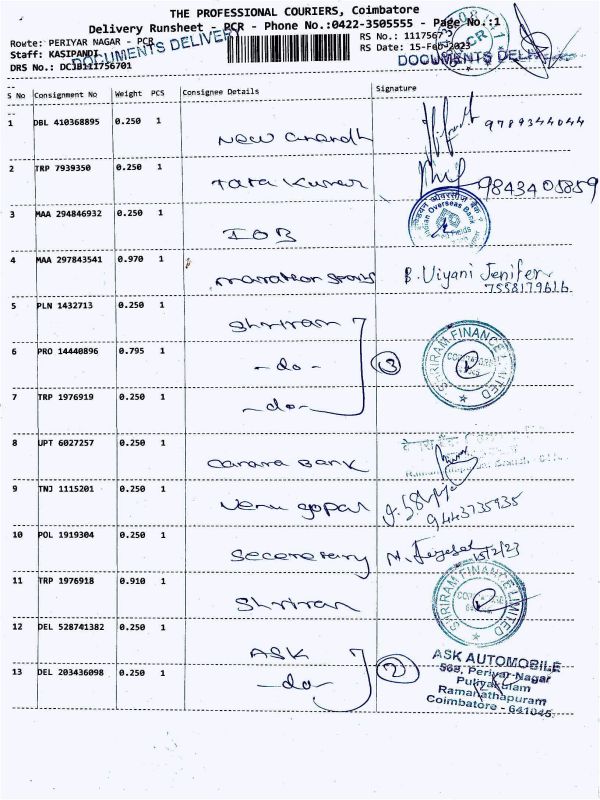 THE PROFESSIONAL COURIERS, Coimbatore
Delivery Runsheet - PCR - Phone No.:0422-3505555 - Page No.:1
Route: PERIYAR NAGAR - PCR
RS No.: 1117567
Staff: KASIPANDI
RS Date: 15-Feb-2023
DOCUMENTS DELIVERY
DOCUMENTS DELIV
DRS No.: DCJB111756701
S No Consignment No Weight PCS Consignee Details Signature
1 DBL 410368895 0.250 1 9789344044
New Anandh
2 TRP 7939350 0.250 1
Tata Kumar 9843405859
3 MAA 294846932 0.250 1
Indian Overseas Bank
IOB
4 MAA 297843541 0.970 1
marathon sports B. Viyani Jenifer
7558179616
5 PLN 1432713 0.250 1
Shriram
6 PRO 14440896 0.795 1
-do- 3 SHRIRAM FINANCE LIMITED
7 TRP 1976919 0.250 1
-do-
8 UPT 6027257 0.250 1
Canara Bank
9 TNJ 1115201 0.250 1
Venu gopal 9443735935
10 POL 1919304 0.250 1
Secretary 15/2/23
11 TRP 1976918 0.910 1
Shriram SHRIRAM FINANCE LIMITED
12 DEL 528741382 0.250 1
ASK
13 DEL 203436098 0.250 1
-do- 2
ASK AUTOMOBILE
568, Periyar Nagar
Puliyakulam
Ramanathapuram
Coimbatore - 641045.